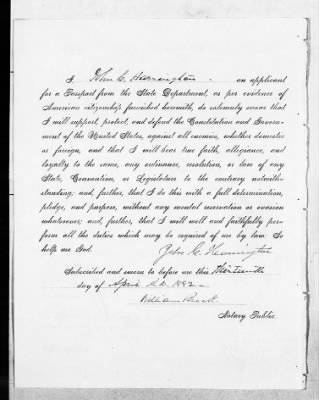 I John C. Hennington - an applicant
for a Passport from the State Department, as per evidence of
American citizenship furnished herewith, do solemnly swear that
I will support, protect, and defend the Constitution and Govern-
ment of the United States, against all enemies, whether domestic
or foreign, and that I will bear true faith, allegiance, and
loyalty to the same, any ordinance, resolution, or law of any
State, Convention, or Legislature to the contrary notwith-
standing; and, further, that I do this with a full determination,
pledge, and purpose, without any mental reservation or evasion
whatsoever; and, further, that I will well and faithfully per-
form all the duties which may be required of me by law. So
help me God.
John C. Hennington
Subscribed and sworn to before me this thirteenth
day of April A.D. 1892
William
Notary Public.